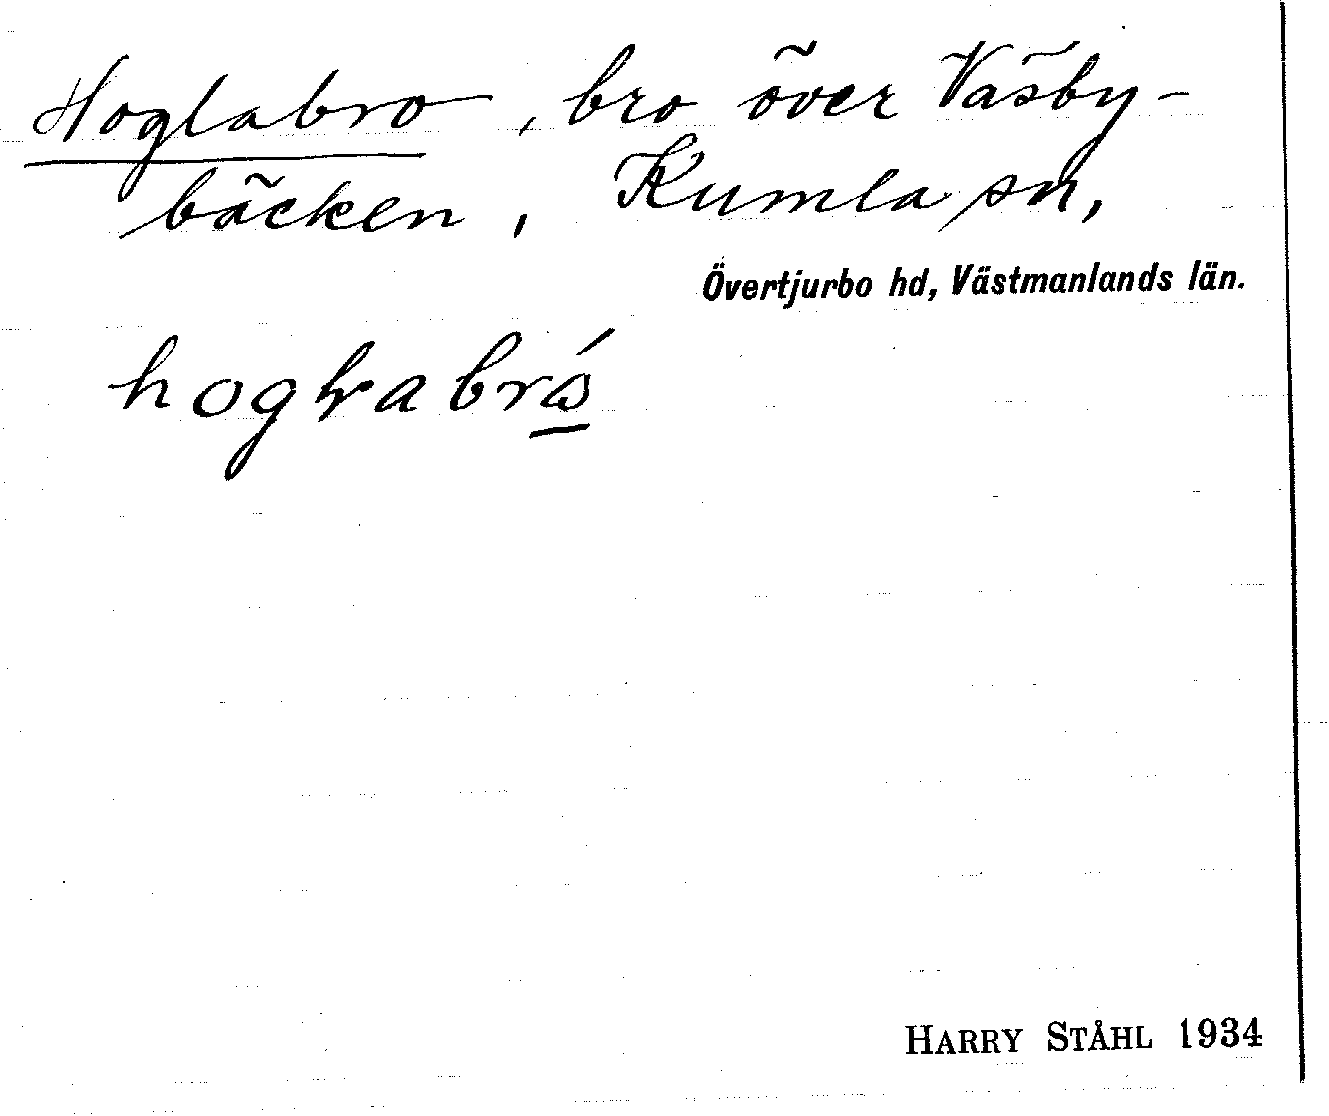 Hoglabro, bro över Väsby-
bäcken, Kumla sn,
Övertjurbo hd, Västmanlands län.
HARRY STÅHL 1934